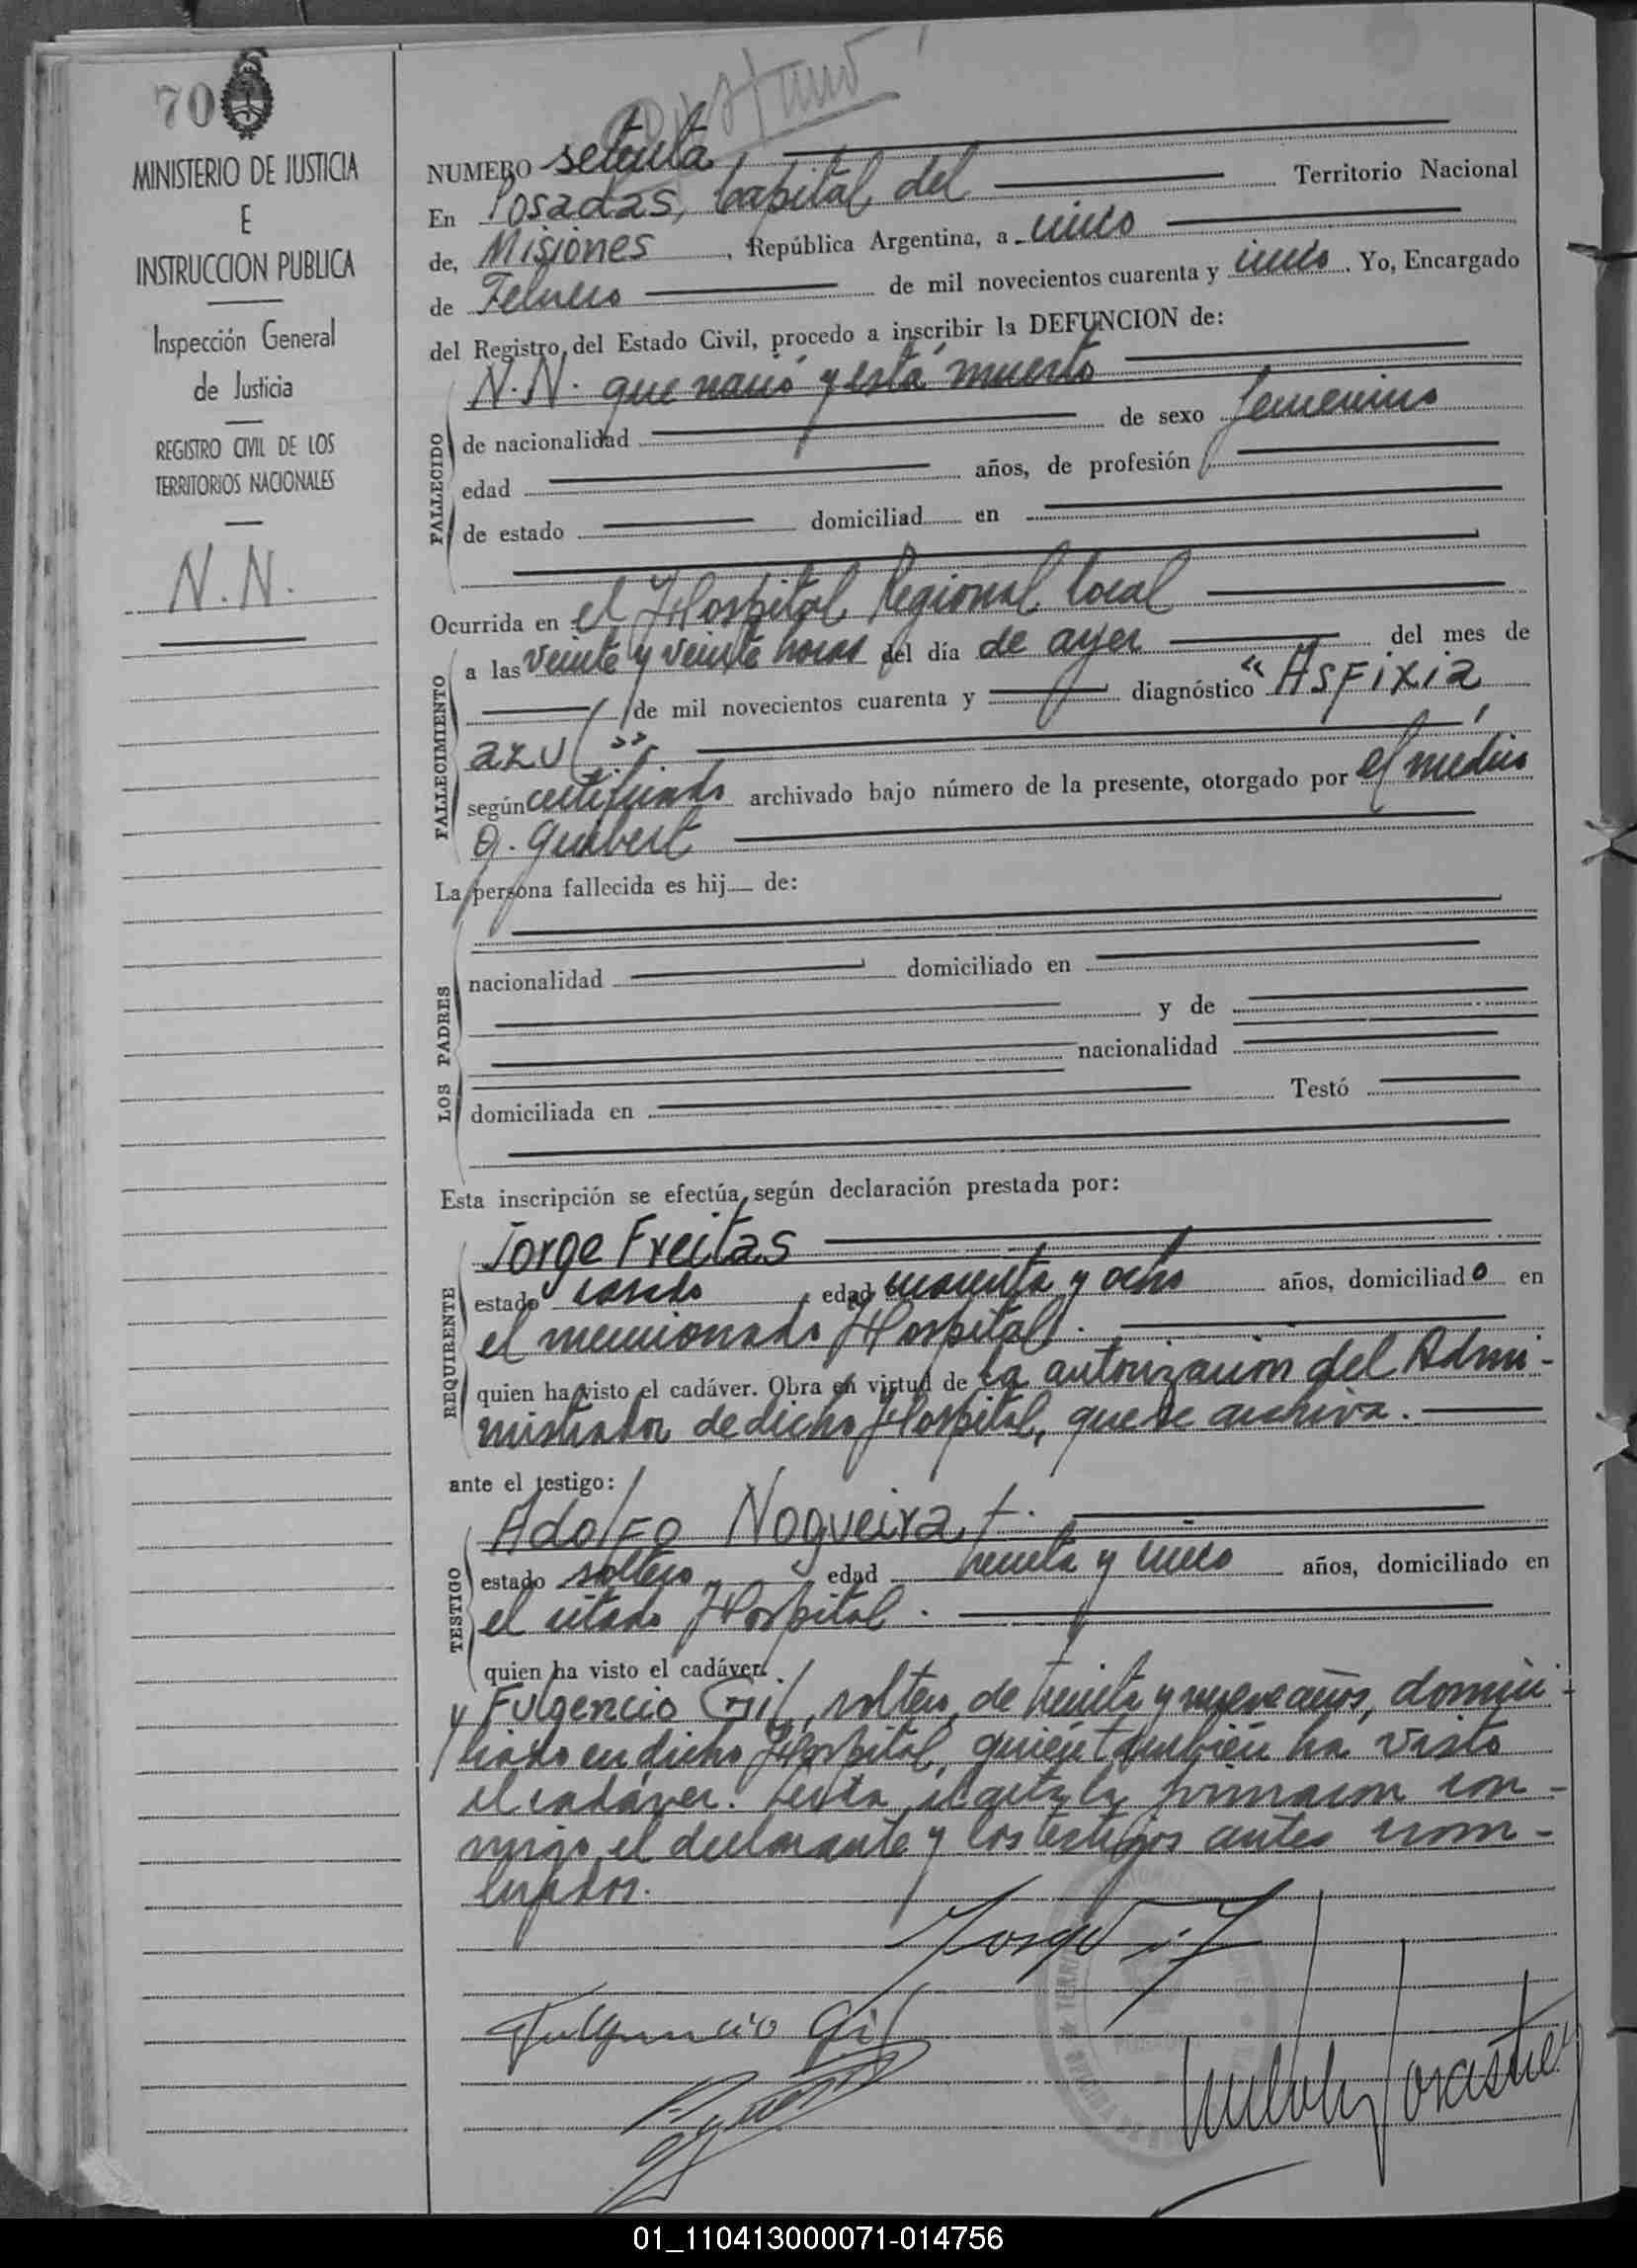 70
MINISTERIO DE JUSTICIA
E
INSTRUCCION PUBLICA
Inspección General
de Justicia
REGISTRO CIVIL DE LOS
TERRITORIOS NACIONALES
N.N.
NUMERO setenta
En Posadas, Capital del Territorio Nacional
de, Misiones, República Argentina, a cinco
de Febrero de mil novecientos cuarenta y cinco. Yo, Encargado
del Registro del Estado Civil, procedo a inscribir la DEFUNCION de:
FALLECIDO
N.N. que nació y está muerto
de nacionalidad de sexo femenino
edad años, de profesión
de estado domiciliad en
Ocurrida en el Hospital Regional local
FALLECIMIENTO
a las veinte y veinte horas del día de ayer del mes de
de mil novecientos cuarenta y diagnóstico "Asfixia
azul"
según certificado archivado bajo número de la presente, otorgado por el médico
La persona fallecida es hij de:
LOS PADRES
nacionalidad domiciliado en
y de
nacionalidad
domiciliada en Testó
Esta inscripción se efectúa según declaración prestada por:
REQUIRENTE
Jorge Freitas
estado casado edad cuarenta y ocho años, domiciliado en
el mencionado Hospital.
quien ha visto el cadáver. Obra en virtud de la autorizacion del Admi-
nistrador de dicho Hospital, que se archiva.
ante el testigo:
TESTIGO
Adolfo Nogueira
estado soltero edad treinta y cinco años, domiciliado en
el citado Hospital.
quien ha visto el cadáver.
y Fulgencio Gil, soltero, de treinta y nueve años, domici-
liado en dicho Hospital, quién también ha visto
el cadáver. Leída el acta, la firmaron con-
migo, el declarante y los testigos antes nom-
brados.
Jorge F
Fulgencio Gil
01_110413000071-014756